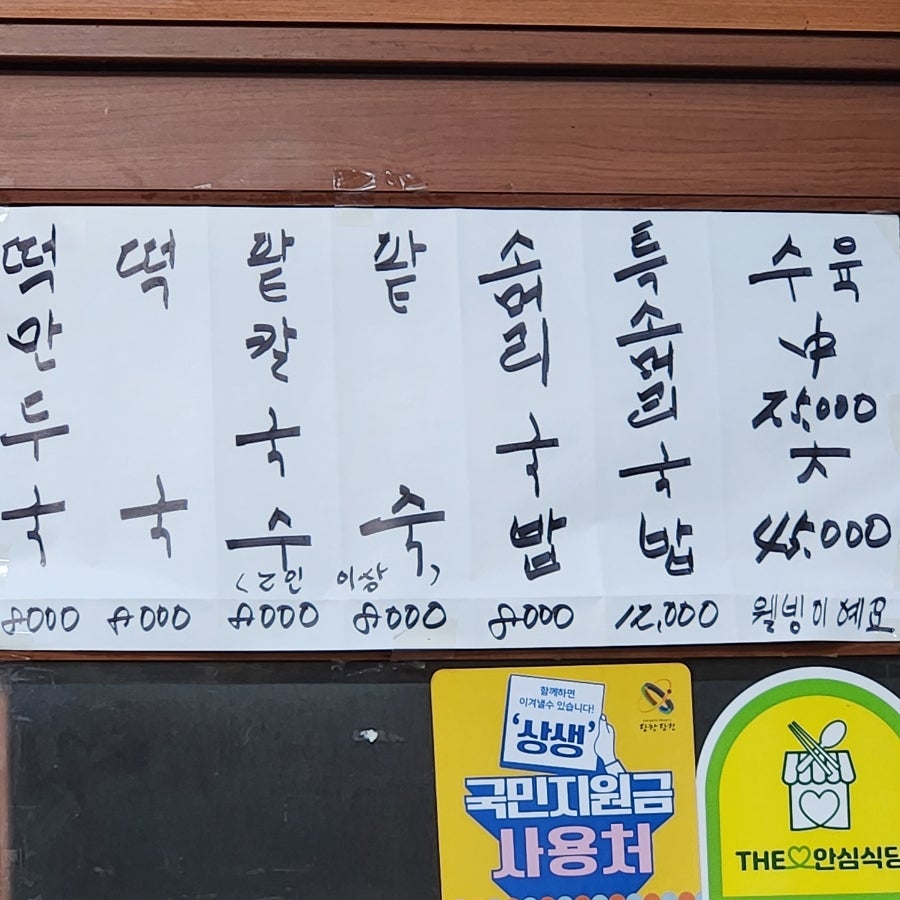 떡만두국 8000
떡국 8000
팥칼국수 8000
팥죽 8000
<2인 이상>
소머리국밥 8000
특소머리국밥 12,000
수육
中
35,000
大
45,000
웰빙이예요
함께하면
이겨낼수 있습니다!
'상생'
당찬당진
국민지원금
사용처
THE 안심식당